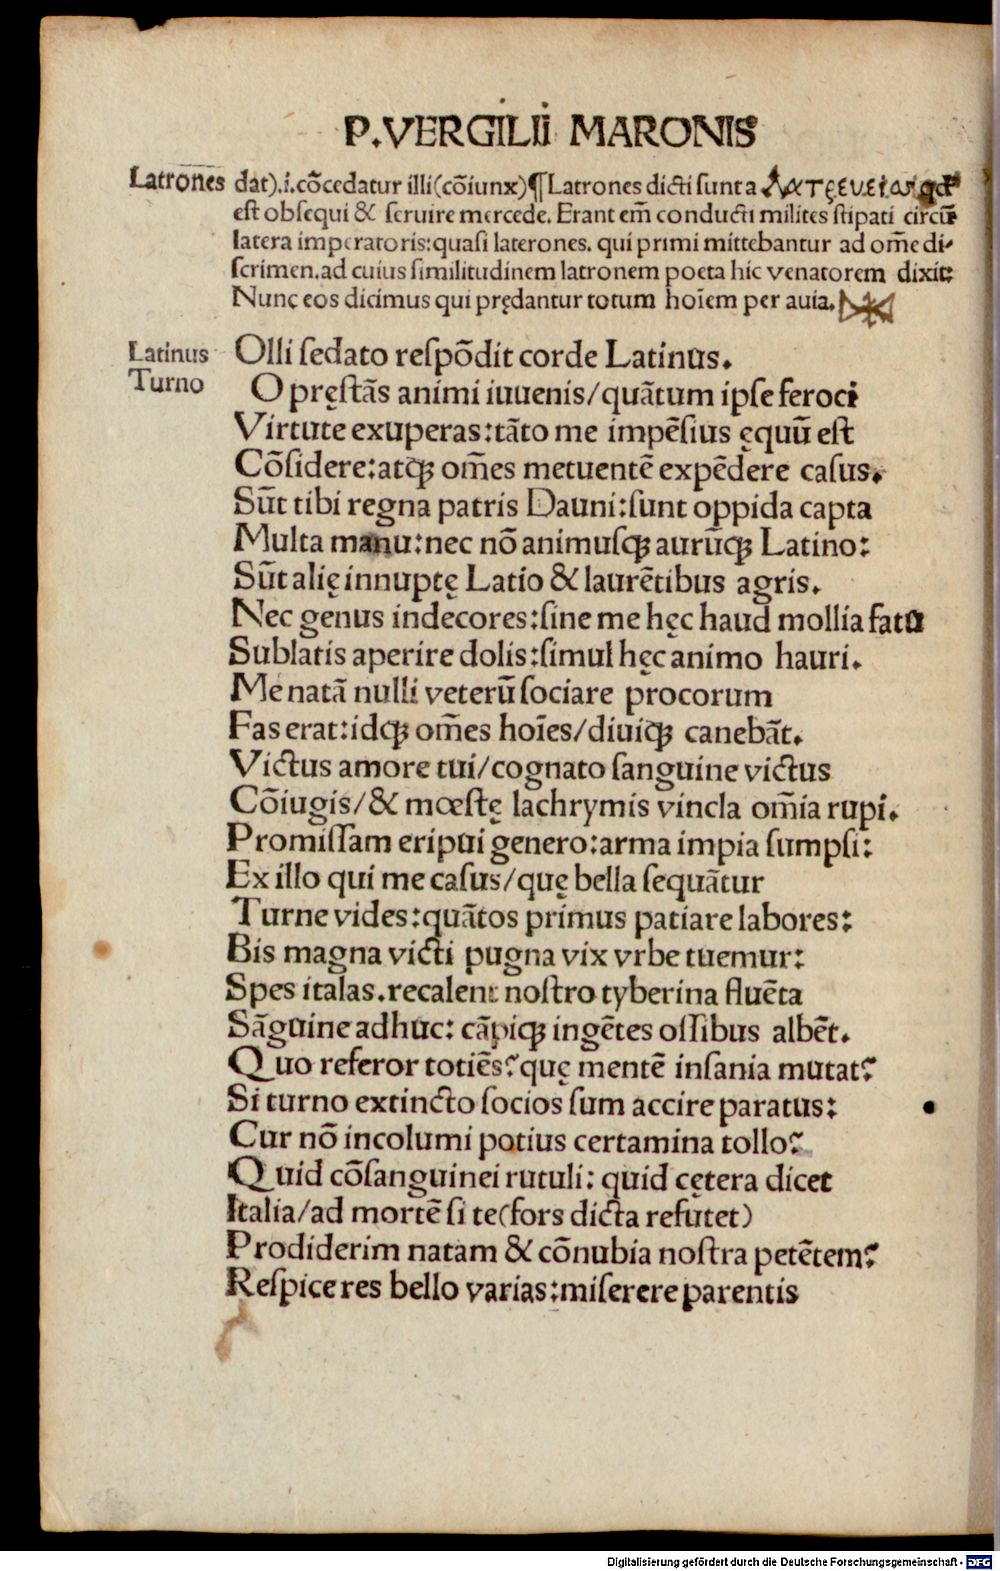 P.VERGILII MARONIS
Latrones dat).i.cõcedatur illi(cõiunx)¶Latrones dicti sunt a λατρευειαν qd̃
est obsequi & seruire mercede. Erant em̃ conducti milites stipati circũ
latera imperatoris:quasi laterones. qui primi mittebantur ad om̃e di-
scrimen.ad cuius similitudinem latronem poeta hic venatorem dixit:
Nunc eos dicimus qui prędantur totum hoĩem per auia.
Latinus Olli sedato respõdit corde Latinus.
Turno O pręstãs animi iuuenis/quãtum ipse feroci
Virtute exuperas:tãto me impẽsius ęquũ est
Cõsidere:atq; om̃es metuentẽ expẽdere casus.
Sũt tibi regna patris Dauni:sunt oppida capta
Multa manu:nec nõ animusq; aurũq; Latino:
Sũt alię innuptę Latio & laurẽtibus agris.
Nec genus indecores:sine me hęc haud mollia fatu
Sublatis aperire dolis:simul hęc animo hauri.
Me natã nulli veterũ sociare procorum
Fas erat:idq; om̃es hoĩes/diuiq; canebãt.
Victus amore tui/cognato sanguine victus
Cõiugis/& mœstę lachrymis vincla om̃ia rupi.
Promissam eripui genero:arma impia sumpsi:
Ex illo qui me casus/quę bella sequãtur
Turne vides:quãtos primus patiare labores:
Bis magna victi pugna vix vrbe tuemur:
Spes italas.recalent nostro tyberina fluẽta
Sãguine adhuc: cãpiq; ingẽtes ossibus albẽt.
Quo referor totiẽs?quę mentẽ insania mutat?
Si turno extincto socios sum accire paratus:
Cur nõ incolumi potius certamina tollo?
Quid cõsanguinei rutuli: quid cętera dicet
Italia/ad mortẽ si te(fors dicta refutet)
Prodiderim natam & cõnubia nostra petẽtem?
Respice res bello varias:miserere parentis
Digitalisierung gefördert durch die Deutsche Forschungsgemeinschaft - DFG